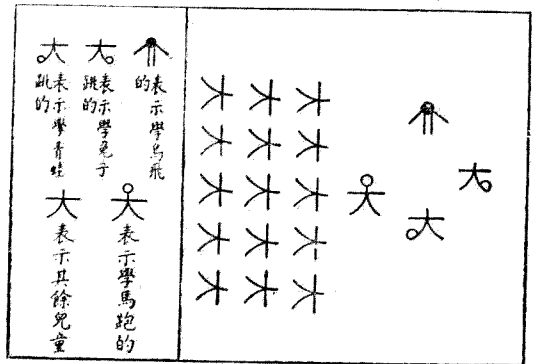 表示學鳥飛
的
表示學兔子
跳的
表示學青蛙
跳的
表示學馬跑的
表示其餘兒童